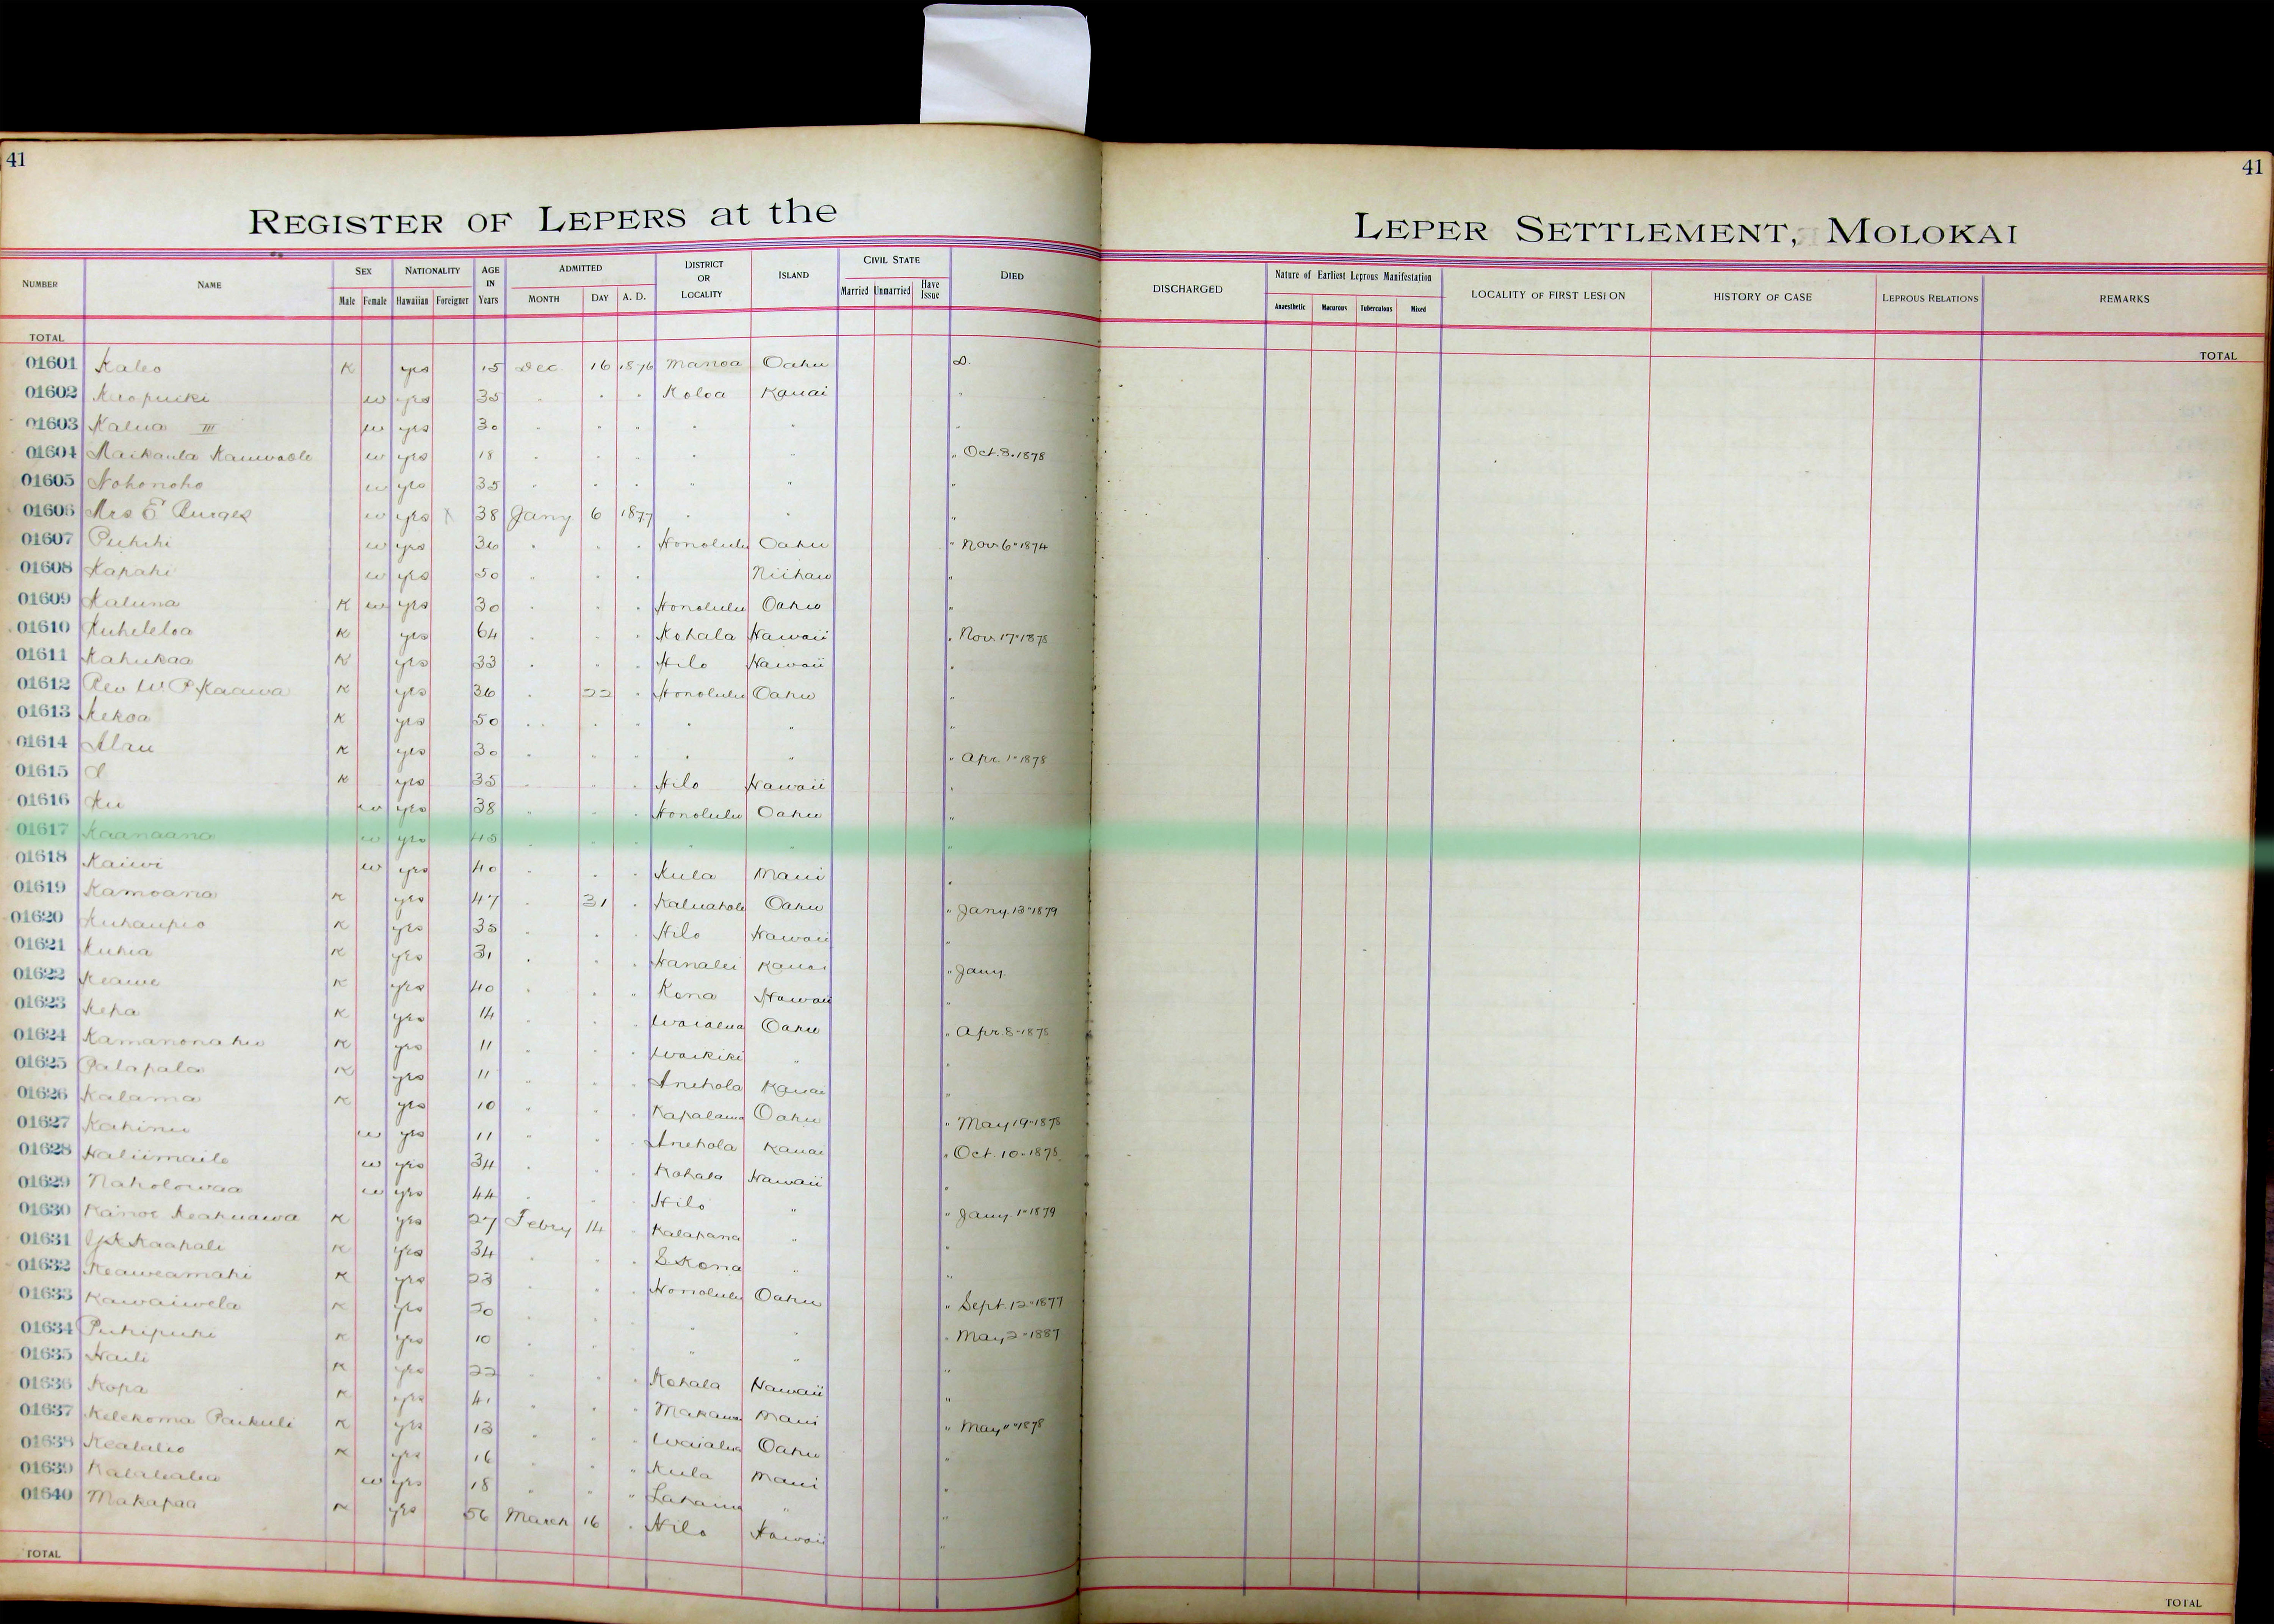 41
41
REGISTER OF LEPERS at the LEPER SETTLEMENT, MOLOKAI
NUMBER NAME SEX NATIONALITY AGE IN Years ADMITTED DISTRICT OR LOCALITY ISLAND CIVIL STATE DIED DISCHARGED Nature of Earliest Leprous Manifestation LOCALITY OF FIRST LESION HISTORY OF CASE LEPROUS RELATIONS REMARKS
Male Female Hawaiian Foreigner MONTH DAY A. D. Married Unmarried Have Issue Anaesthetic Macurous Tuberculous Mixed
TOTAL TOTAL
01601 Kaleo K yes 15 Dec. 16 1876 Manoa Oahu D.
01602 w yes 35 " " " Koloa Kauai "
01603 Kalua III w yes 30 " " " " " "
01604 Maikaula w yes 18 " " " " " " Oct. 3. 1878
01605 Nohonoho w yes 35 " " " " " "
01606 Mrs E Burges w yes X 38 Jany 6 1877 " " "
01607 Puhihi w yes 36 " " " Honolulu Oahu " Nov 6 " 1874
01608 Kapahi w yes 50 " " " Niihau "
01609 Kaluna K w yes 30 " " " Honolulu Oahu "
01610 Kuheleloa K yes 64 " " " Kohala Hawaii " Nov 17 " 1878
01611 Kahukaa K yes 33 " " " Hilo Hawaii "
01612 Rev W. P. Kaawa K yes 36 " 22 " Honolulu Oahu "
01613 Kekoa K yes 50 " " " " " "
01614 Alau K yes 30 " " " " " " Apr. 1 " 1878
01615 K yes 35 " " " Hilo Hawaii "
01616 Ku w yes 38 " " " Honolulu Oahu "
01617 Kaanaana w yes 45 " " " " " "
01618 Kaiwi w yes 40 " " " Kula Maui "
01619 Kamoana K yes 47 " 31 " Oahu " Jany. 13 " 1879
01620 Kuhaupio K yes 35 " " " Hilo Hawaii "
01621 Kuhia K yes 31 " " " Hanalei Kauai " Jany.
01622 Keawe K yes 40 " " " Kona Hawaii "
01623 Kepa K yes 14 " " " Waialua Oahu " Apr. 8 " 1878
01624 K yes 11 " " " Waikiki " "
01625 Palapala K yes 11 " " " Anehola Kauai "
01626 Kalama K yes 10 " " " Kapalama Oahu " May 19 " 1878
01627 Kahinu w yes 11 " " " Anehola Kauai " Oct. 10 " 1878
01628 Haliimaile w yes 34 " " " Kohala Hawaii "
01629 Naholowaa w yes 44 " " " Hilo " " Jany. 1 " 1879
01630 Kanoe Keakuawa K yes 27 Febry 14 " Kalapana " "
01631 Kaahale K yes 34 " " " S Kona " "
01632 Keaweamahi K yes 23 " " " Honolulu Oahu " Sept. 12 " 1877
01633 Kawaiwela K yes 20 " " " " " " May 2 " 1887
01634 Puhipuhi K yes 10 " " " " " "
01635 Haili K yes 22 " " " Kohala Hawaii "
01636 Kopa K yes 41 " " " Makawao Maui " May 11 " 1878
01637 Kelekoma Paikuli K yes 13 " " " Waialua Oahu "
01638 K yes 16 " " " Kula Maui "
01639 w yes 18 " " " Lahaina " "
01640 Makapaa K yes 56 March 16 " Hilo Hawaii "
TOTAL TOTAL